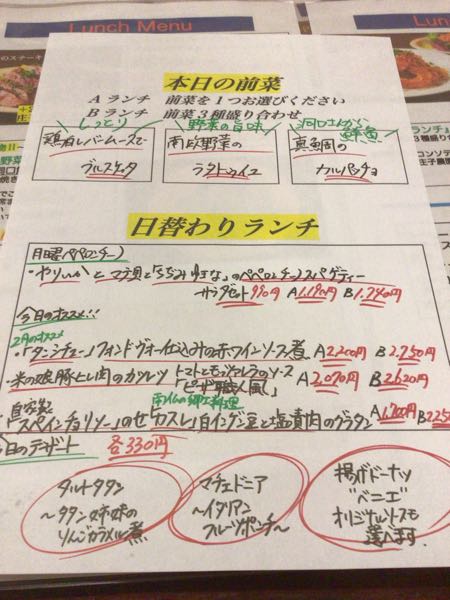 Lunch Menu
Lunch
本日の前菜
Aランチ 前菜を1つお選びください
Bランチ 前菜3種盛り合わせ
しっとり
鶏白レバームースで
ブルスケッタ
野菜の旨味
南欧野菜の
ラタトゥイユ
河口さんから
鮮魚
真鯛の
カルパッチョ
日替わりランチ
月曜ペペロンチーノ
・やりいかとマッシュ
サラダセット990円 A1,190円 B1,740円
今日のオススメ!!
2月のオススメ
・「タンシチュー」フォンドヴォー仕込みの赤ワインソース煮 A2,200円 B2,750円
・米の娘豚ヒレ肉のカツレツ トマトとモッツァレラのソース
「ピザ職人風」 A2,070円 B2,620円
南仏の郷土料理
・自家製「スペインチョリソー」のせ「カスレ」白インゲン豆と塩漬肉のグラタン A1,700円 B2,25
日のデザート 各330円
タルトタタン
~タタン姉妹の
りんごカラメル煮
マチェドニア
~イタリアン
フルーツポンチ~
揚げドーナツ
"ベニエ"
オリジナルソースも
選べます